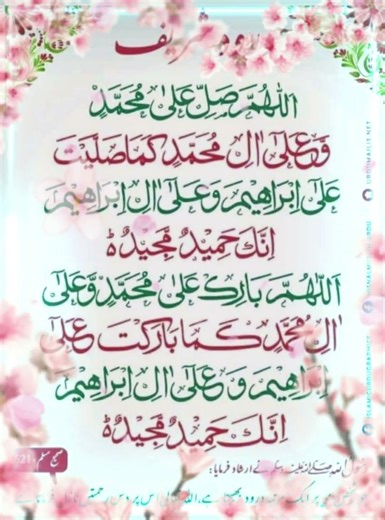 درود شریف
اَللّٰهُمَّ صَلِّ عَلٰی مُحَمَّدٍ
وَّعَلٰٓی اٰلِ مُحَمَّدٍ کَمَا صَلَّیْتَ
عَلٰٓی اِبْرَاهِیْمَ وَعَلٰٓی اٰلِ اِبْرَاهِیْمَ
اِنَّکَ حَمِیْدٌ مَّجِیْدٌ ہ
اَللّٰهُمَّ بَارِکْ عَلٰی مُحَمَّدٍ وَّعَلٰٓی
اٰلِ مُحَمَّدٍ کَمَا بَارَکْتَ عَلٰٓی
اِبْرَاهِیْمَ وَعَلٰٓی اٰلِ اِبْرَاهِیْمَ
اِنَّکَ حَمِیْدٌ مَّجِیْدٌ ہ
رسول اللہ ﷺ نے ارشاد فرمایا:
صحیح مسلم
پر ایک مرتبہ درود بھیجتا ہے، اللہ تعالیٰ اس پر دس رحمتیں